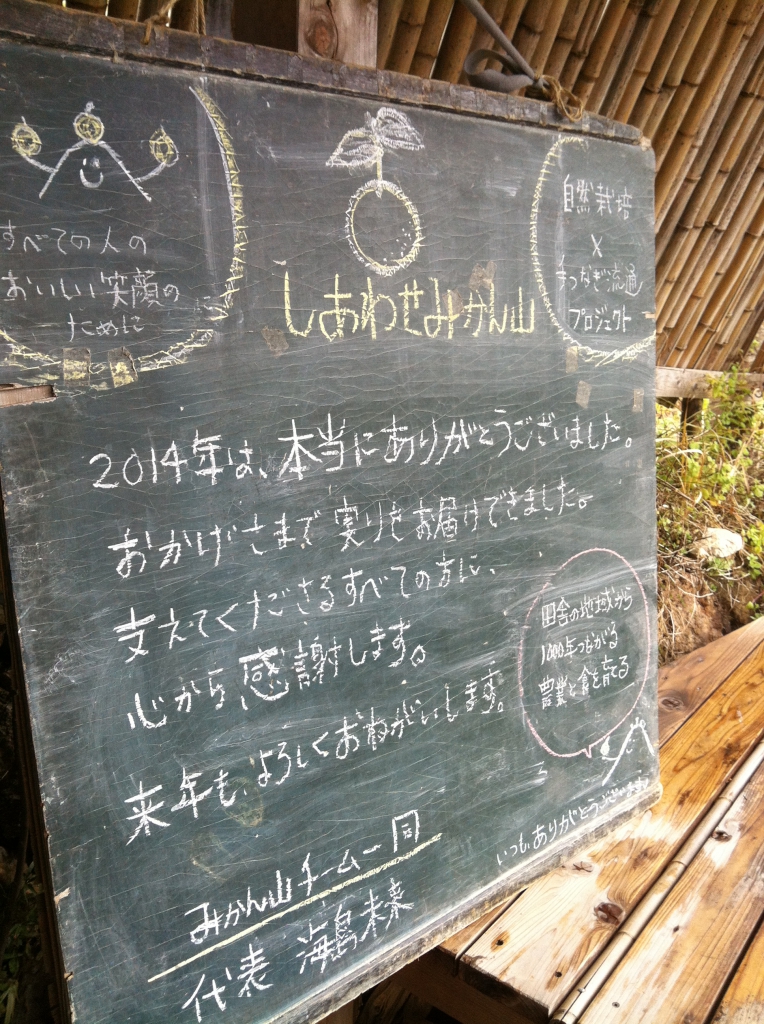 すべての人の
おいしい笑顔の
ために
しあわせみかん山
自然栽培
×
まつなぎ流通
プロジェクト
2014年は、本当にありがとうございました。
おかげさまで実りをお届けできました。
支えてくださるすべての方に、
心から感謝します。
来年も、よろしくおねがいします。
田舎の地域から
1000年つながる
農業と食を育てる
いつも、ありがとうございます!
みかん山チーム一同
代表 海島未来